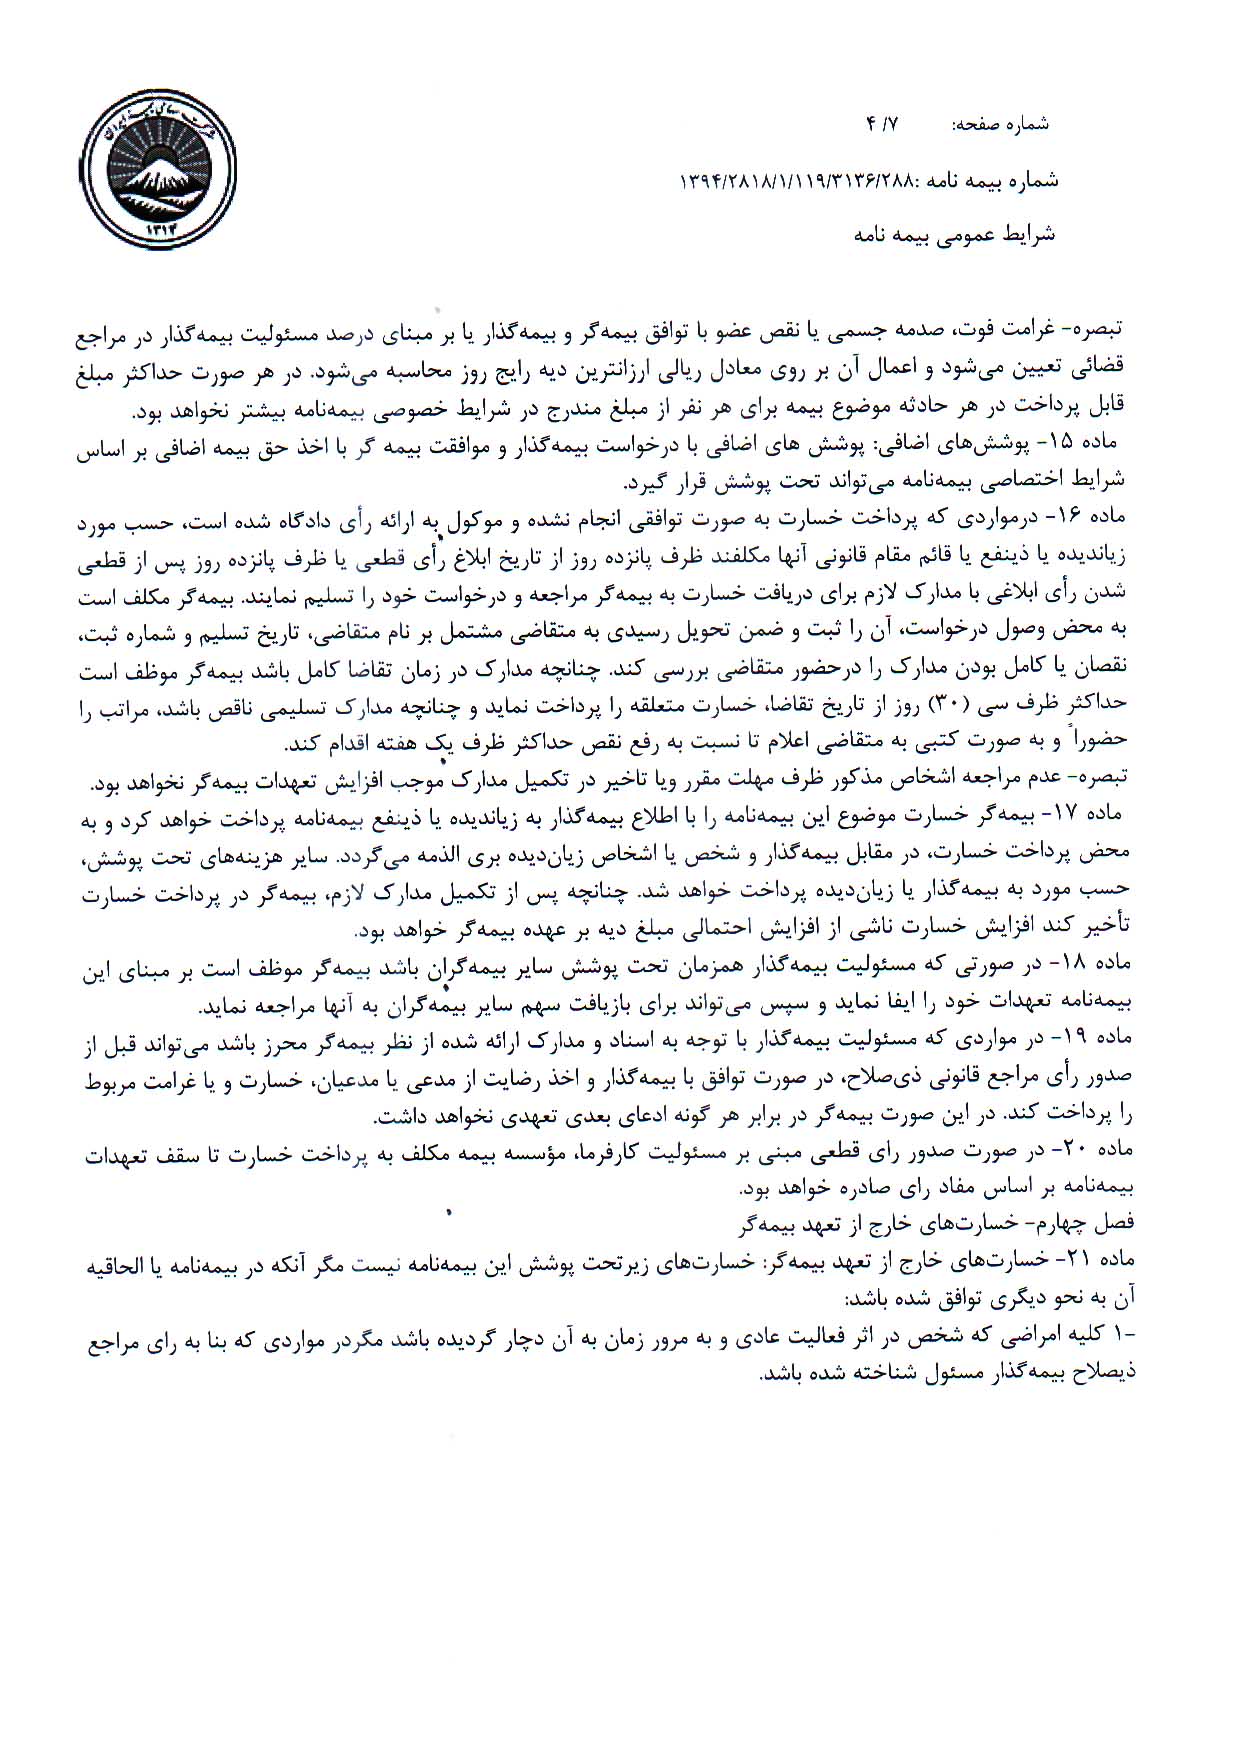 شرکت سهامی بیمه ایران
۱۳۱۴
شماره صفحه: ۴/۷
شماره بیمه نامه :۱۳۹۴/۲۸۱۸/۱/۱۱۹/۳۱۳۶/۲۸۸
شرایط عمومی بیمه نامه
تبصره- غرامت فوت، صدمه جسمی یا نقص عضو با توافق بیمه‌گر و بیمه‌گذار یا بر مبنای درصد مسئولیت بیمه‌گذار در مراجع
قضائی تعیین می‌شود و اعمال آن بر روی معادل ریالی ارزانترین دیه رایج روز محاسبه می‌شود. در هر صورت حداکثر مبلغ
قابل پرداخت در هر حادثه موضوع بیمه برای هر نفر از مبلغ مندرج در شرایط خصوصی بیمه‌نامه بیشتر نخواهد بود.
ماده ۱۵- پوشش‌های اضافی: پوشش های اضافی با درخواست بیمه‌گذار و موافقت بیمه گر با اخذ حق بیمه اضافی بر اساس
شرایط اختصاصی بیمه‌نامه می‌تواند تحت پوشش قرار گیرد.
ماده ۱۶- درمواردی که پرداخت خسارت به صورت توافقی انجام نشده و موکول به ارائه رأی دادگاه شده است، حسب مورد
زیاندیده یا ذینفع یا قائم مقام قانونی آنها مکلفند ظرف پانزده روز از تاریخ ابلاغ رأی قطعی یا ظرف پانزده روز پس از قطعی
شدن رأی ابلاغی با مدارک لازم برای دریافت خسارت به بیمه‌گر مراجعه و درخواست خود را تسلیم نمایند. بیمه‌گر مکلف است
به محض وصول درخواست، آن را ثبت و ضمن تحویل رسیدی به متقاضی مشتمل بر نام متقاضی، تاریخ تسلیم و شماره ثبت،
نقصان یا کامل بودن مدارک را درحضور متقاضی بررسی کند. چنانچه مدارک در زمان تقاضا کامل باشد بیمه‌گر موظف است
حداکثر ظرف سی (۳۰) روز از تاریخ تقاضا، خسارت متعلقه را پرداخت نماید و چنانچه مدارک تسلیمی ناقص باشد، مراتب را
حضوراً و به صورت کتبی به متقاضی اعلام تا نسبت به رفع نقص حداکثر ظرف یک هفته اقدام کند.
تبصره- عدم مراجعه اشخاص مذکور ظرف مهلت مقرر ویا تاخیر در تکمیل مدارک موجب افزایش تعهدات بیمه‌گر نخواهد بود.
ماده ۱۷- بیمه‌گر خسارت موضوع این بیمه‌نامه را با اطلاع بیمه‌گذار به زیاندیده یا ذینفع بیمه‌نامه پرداخت خواهد کرد و به
محض پرداخت خسارت، در مقابل بیمه‌گذار و شخص یا اشخاص زیان‌دیده بری الذمه می‌گردد. سایر هزینه‌های تحت پوشش،
حسب مورد به بیمه‌گذار یا زیان‌دیده پرداخت خواهد شد. چنانچه پس از تکمیل مدارک لازم، بیمه‌گر در پرداخت خسارت
تأخیر کند افزایش خسارت ناشی از افزایش احتمالی مبلغ دیه بر عهده بیمه‌گر خواهد بود.
ماده ۱۸- در صورتی که مسئولیت بیمه‌گذار همزمان تحت پوشش سایر بیمه‌گران باشد بیمه‌گر موظف است بر مبنای این
بیمه‌نامه تعهدات خود را ایفا نماید و سپس می‌تواند برای بازیافت سهم سایر بیمه‌گران به آنها مراجعه نماید.
ماده ۱۹- در مواردی که مسئولیت بیمه‌گذار با توجه به اسناد و مدارک ارائه شده از نظر بیمه‌گر محرز باشد می‌تواند قبل از
صدور رأی مراجع قانونی ذی‌صلاح، در صورت توافق با بیمه‌گذار و اخذ رضایت از مدعی یا مدعیان، خسارت و یا غرامت مربوط
را پرداخت کند. در این صورت بیمه‌گر در برابر هر گونه ادعای بعدی تعهدی نخواهد داشت.
ماده ۲۰- در صورت صدور رای قطعی مبنی بر مسئولیت کارفرما، مؤسسه بیمه مکلف به پرداخت خسارت تا سقف تعهدات
بیمه‌نامه بر اساس مفاد رای صادره خواهد بود.
فصل چهارم- خسارت‌های خارج از تعهد بیمه‌گر
ماده ۲۱- خسارت‌های خارج از تعهد بیمه‌گر: خسارت‌های زیرتحت پوشش این بیمه‌نامه نیست مگر آنکه در بیمه‌نامه یا الحاقیه
آن به نحو دیگری توافق شده باشد:
۱- کلیه امراضی که شخص در اثر فعالیت عادی و به مرور زمان به آن دچار گردیده باشد مگردر مواردی که بنا به رای مراجع
ذیصلاح بیمه‌گذار مسئول شناخته شده باشد.